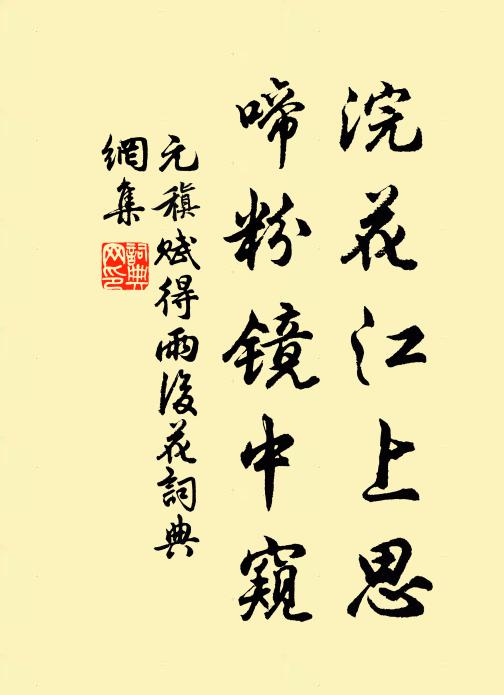 浣花江上思
啼粉镜中窥
元稹赋得雨後花詞典
網集
詞典
网印